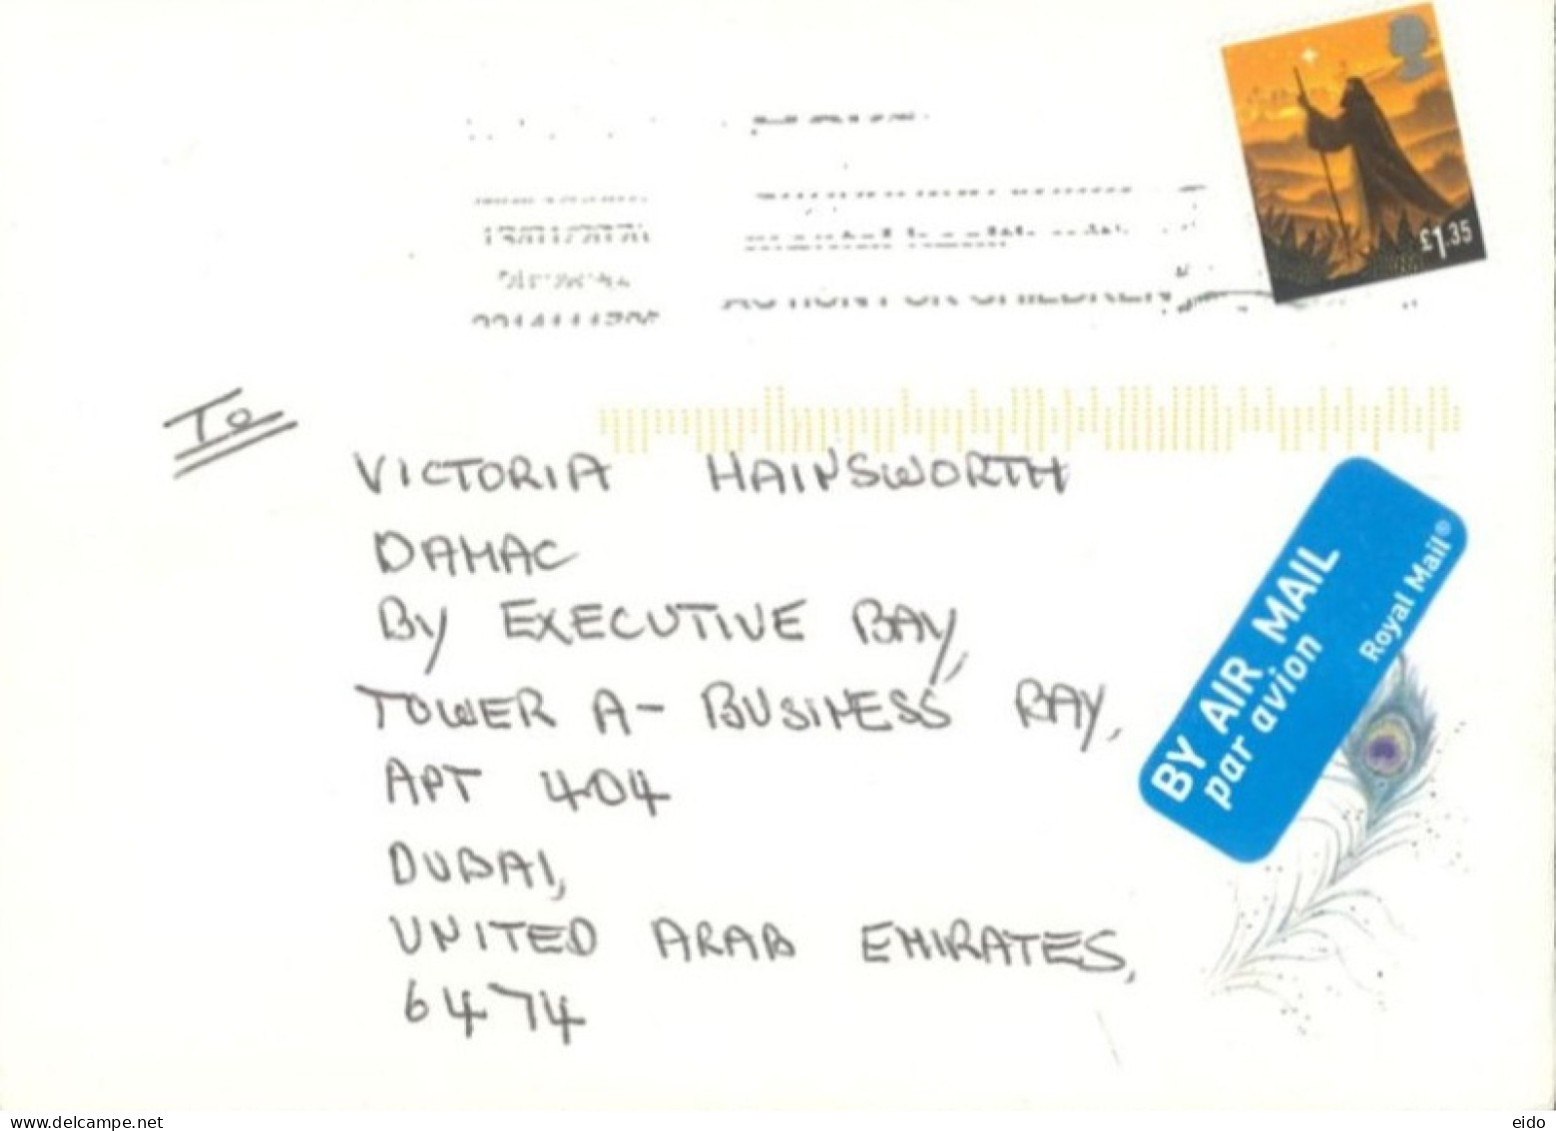 £1.35
13/01/2020
ACTION FOR CHILDREN
To
VICTORIA HAINSWORTH
DAMAC
BY EXECUTIVE BAY,
TOWER A- BUSINESS BAY,
APT 404
DUBAI,
UNITED ARAB EMIRATES,
6474
BY AIR MAIL
par avion
Royal Mail®
www.delcampe.net
eido